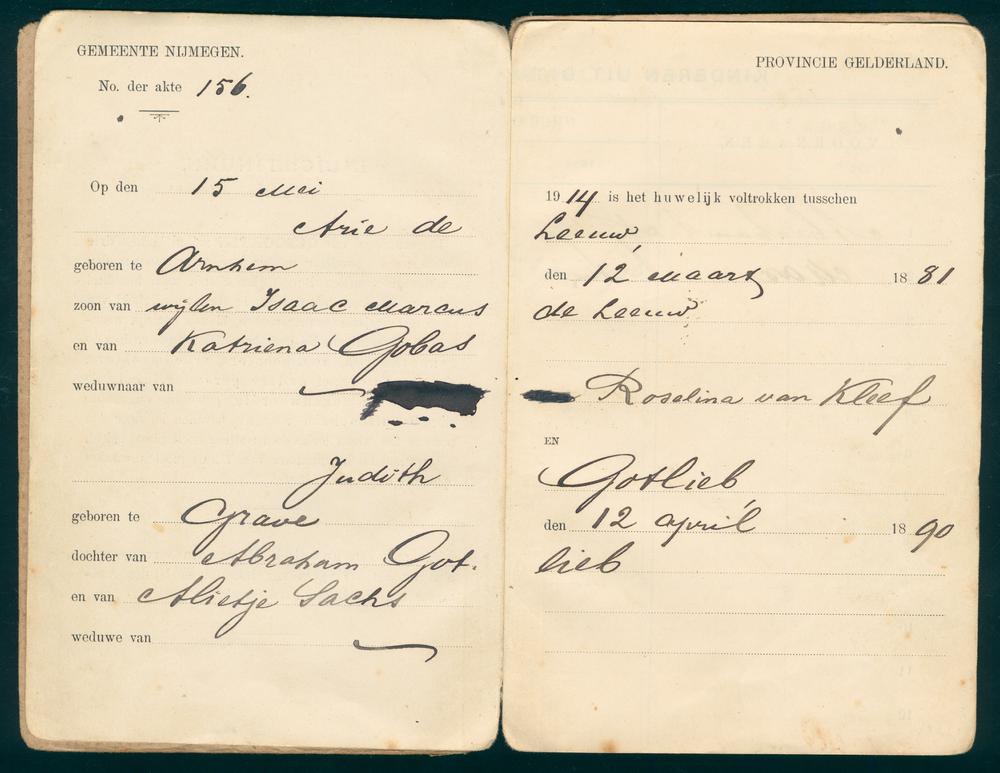 GEMEENTE NIJMEGEN.
No. der akte 156.
Op den 15 Mei
Arie de
geboren te Arnhem
zoon van wijlen Isaac Marcus
en van Katriena Gobas
weduwnaar van
Judith
geboren te Grave
dochter van Abraham Got.
en van Alietje Sachs
weduwe van
PROVINCIE GELDERLAND.
1914 is het huwelijk voltrokken tusschen
Leeuw,
den 12 Maart 1881
de Leeuw
Roselina van Kleef
EN
Gotlieb,
den 12 april 1890
lieb